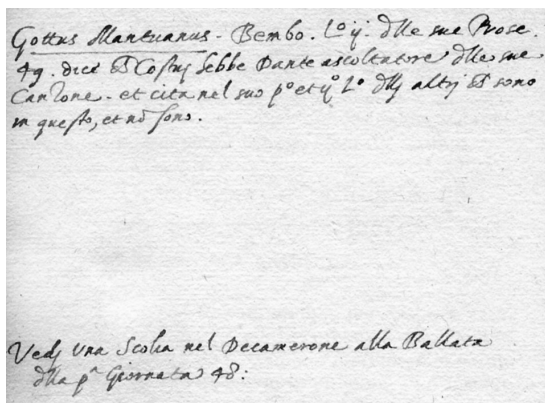 Gottus Mantuanus - Bembo. Lo ij. dlle sue Prose.
49. dice Costuj hebbe Dante ascoltatore dlle sue
Canzone. et cita nel suo po et ijo Lo dllj altrj sono
in questo, et nō sono.
Vedj una Scolia nel Decamerone alla Ballata
dlla pa Giornata 48: